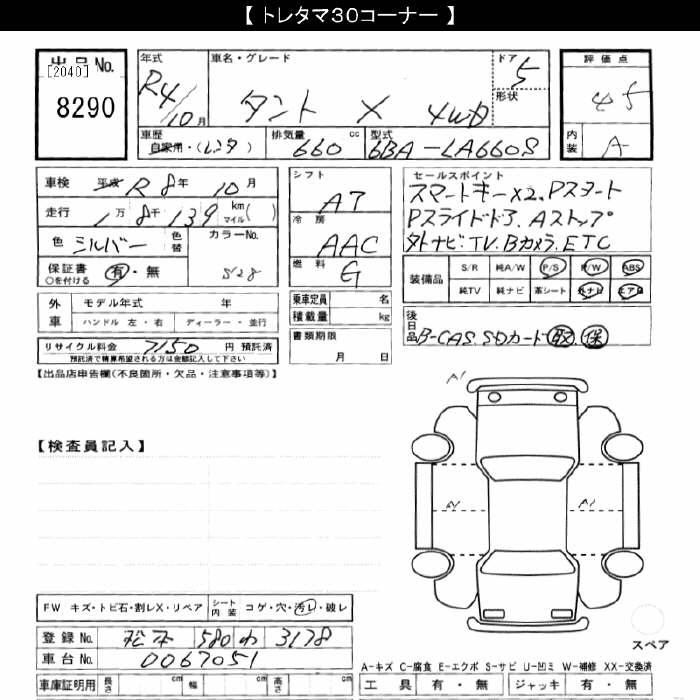 【 トレタマ３０コーナー 】
出品No.
[2040]
8290
年式
R4/10月
車名・グレード
タント X 4WD
ドア
5
形状
評価点
4.5
内装
A
車歴
自家用・(レンタ)
排気量
660 cc
型式
6BA-LA660S
車検 平成 R 8年 10月
走行 1万 8千 139 km マイル( )
色 シルバー 色替
カラーNo.
S28
保証書 ○を付ける 有・無
シフト
AT
冷房
AAC
燃料
G
セールスポイント
スマートキーX2、Pスタート
Pスライドドア、Aストップ
外ナビ、TV、Bカメラ、ETC
装備品
S/R 純A/W P/S P/W ABS
純TV 純ナビ 革シート 外ナビ エアB
外車
モデル年式 年
ハンドル 左・右 ディーラー・並行
乗車定員 名
積載量 kg
リサイクル料金 7150 円 預託済
預託済で精算希望される方は金額記入して下さい
書類期限
月 日
後日品
B-CAS、SDカード 取 保
【出品店申告欄(不良箇所・欠品・注意事項等)】
【検査員記入】
A1
A1
A1
FW キズ・トビ石・割レX・リペア
シート内装 コゲ・穴・汚レ・破レ
登録No. 松本 580 わ 3178
車台No. 0067051
車庫証明用 長さ cm 幅 cm 高さ cm
スペア
A-キズ C-腐食 E-エクボ S-サビ U-凹ミ W-補修 XX-交換済
工具 有・無 ジャッキ 有・無